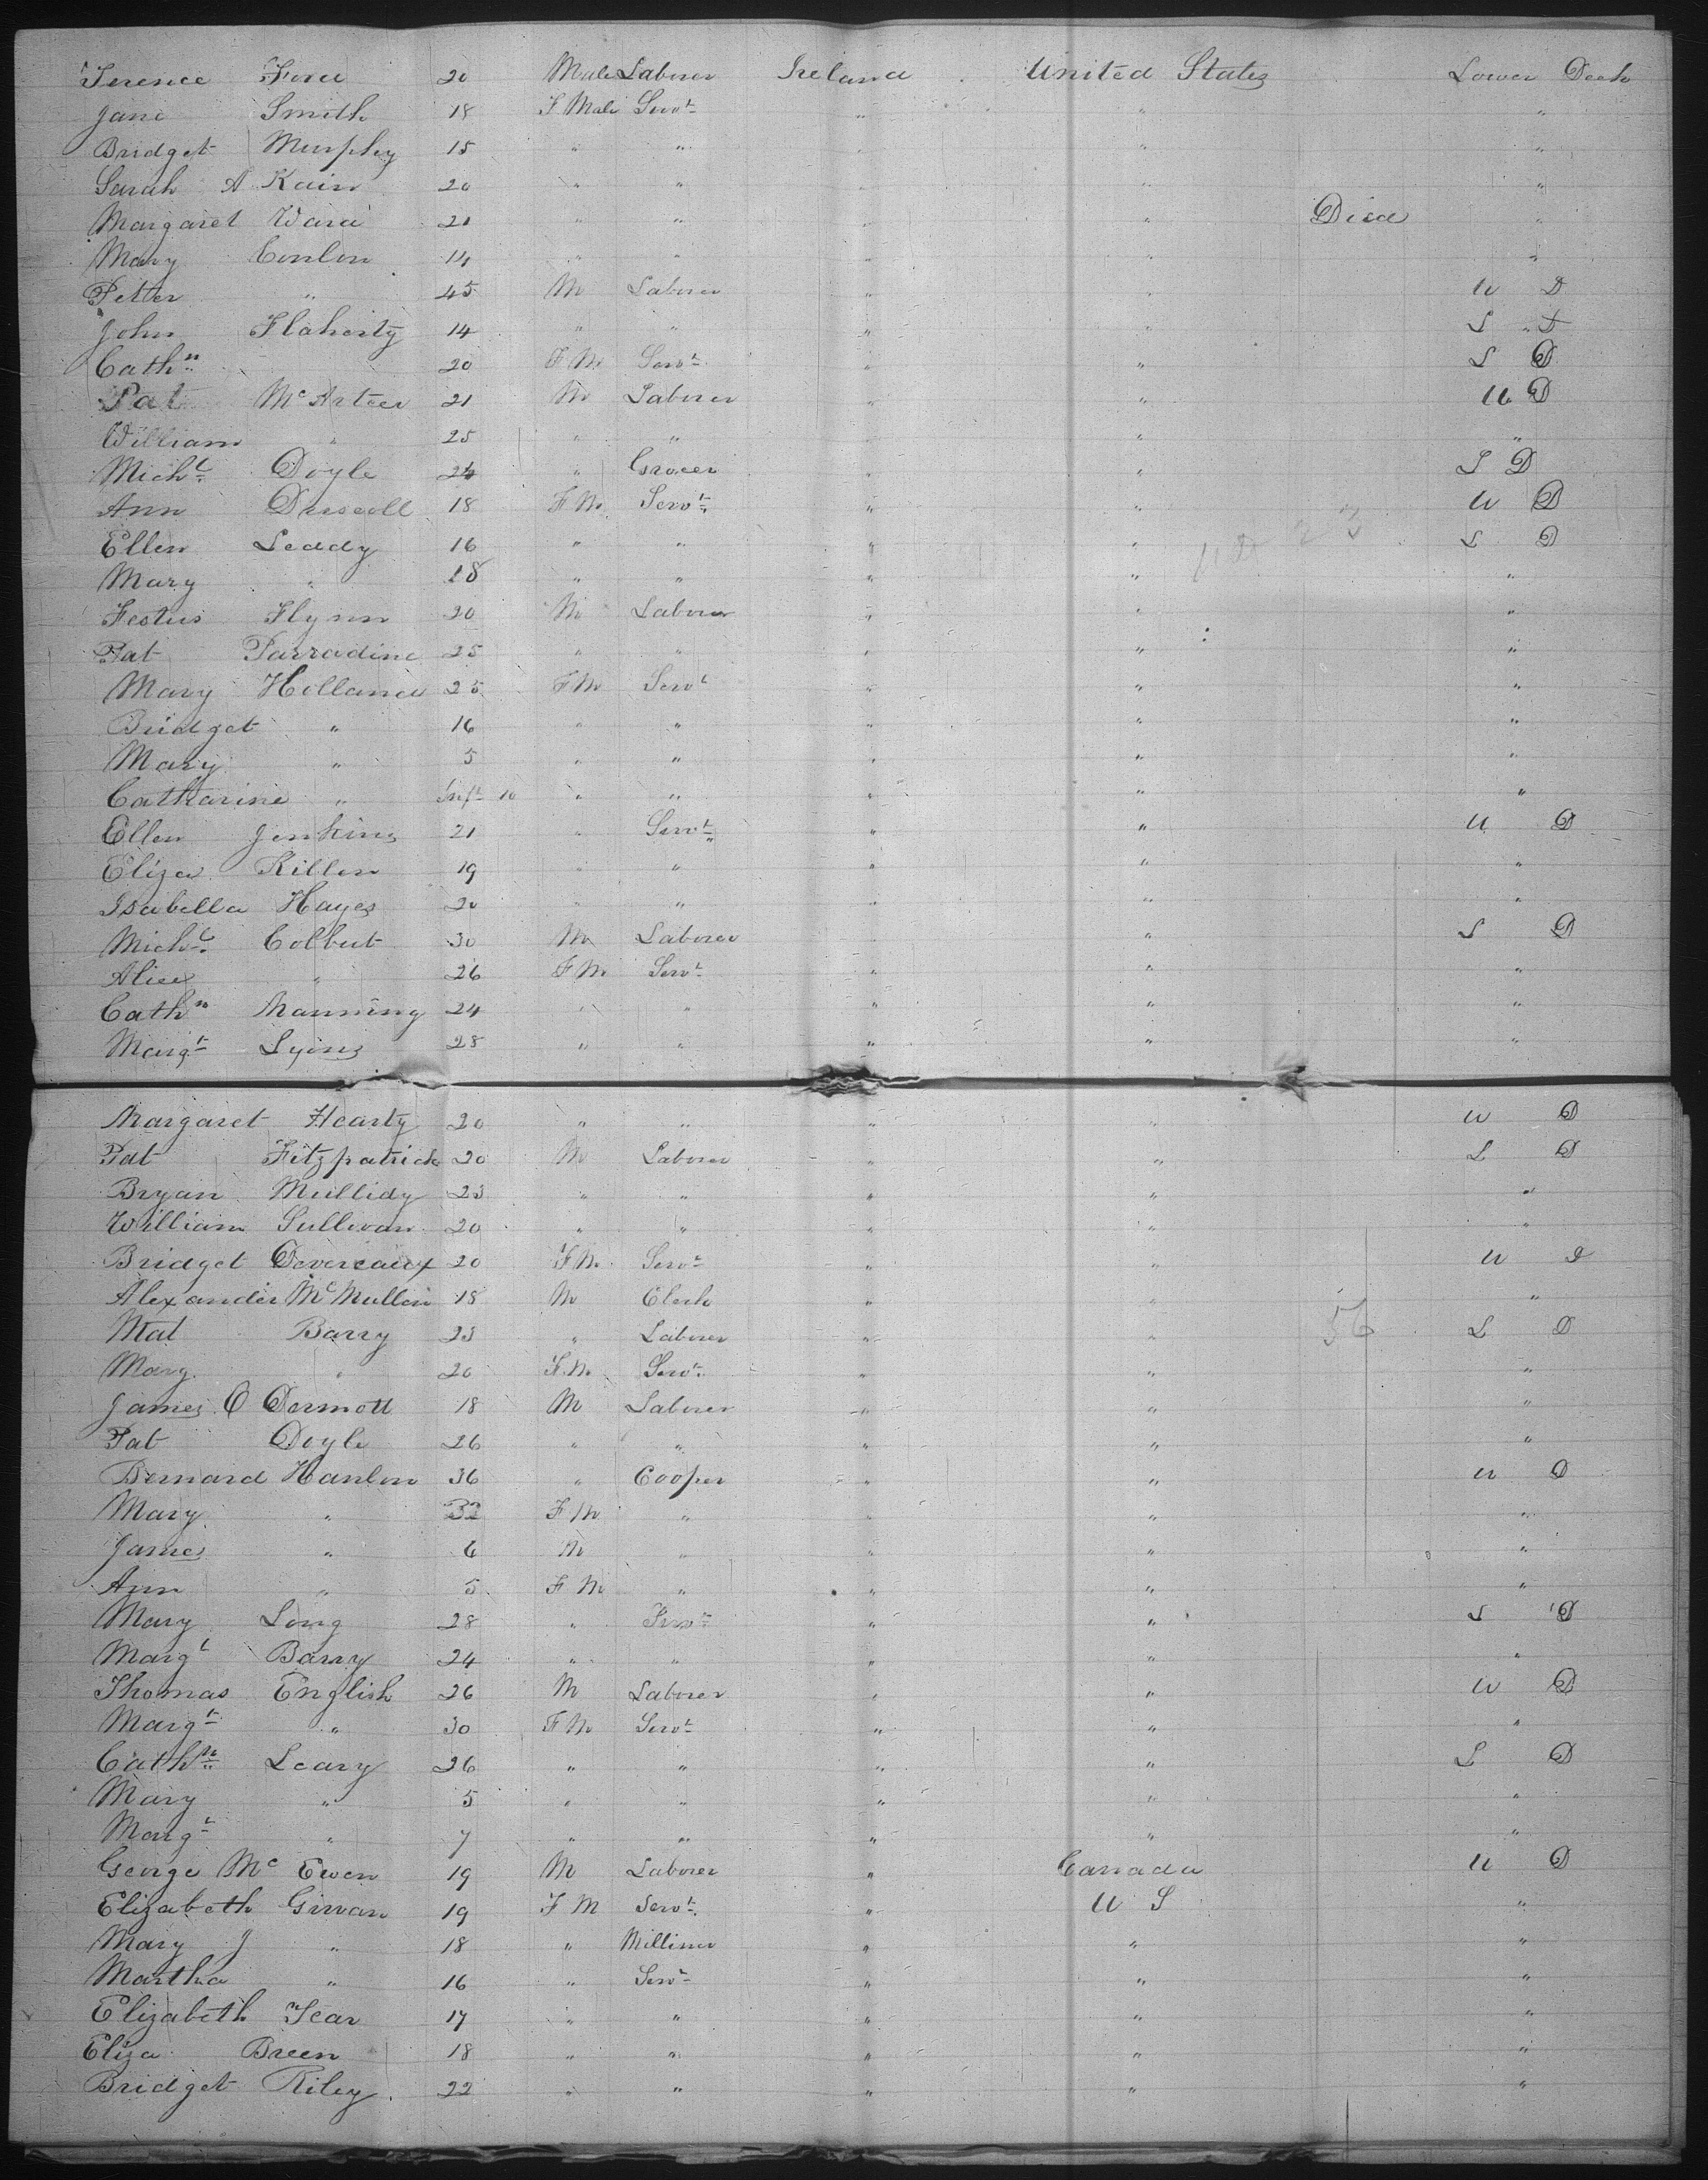 Terence Ford 20 Male Laborer Ireland United States Lower Deck
Jane Smith 18 F Male Servt " " "
Bridget Murphy 15 " " " " "
Sarah A Kain 20 " " " " "
Margaret Ward 21 " " " " Died "
Mary Conlon 14 " " " " "
Petter " 45 M Laborer " " U D
John Flaherty 14 " " " " L D
Cathn " 20 F M Servt " " L D
Pat McArteer 21 M Laborer " " U D
William " 25 " " " " "
Michl Doyle 24 " Grocer " " L D
Ann Driscoll 18 F M Servt " " U D
Ellen Leddy 16 " " " " L D
Mary " 18 " " " " "
Festus Flynn 20 M Laborer " " "
Pat Parradine 25 " " " " "
Mary Holland 25 F M Servt " " "
Bridget " 16 " " " " "
Mary " 5 " " " " "
Catharine " Inft 10 " " " " "
Ellen Jenkins 21 " Servt " " U D
Eliza Killen 19 " " " " "
Isabella Hayes 20 " " " " "
Michl Colbut 30 M Laborer " " L D
Alice " 26 F M Servt " " "
Cathn Manning 24 " " " " "
Margt Lyins 28 " " " " "
Margaret Hearty 20 " " " " U D
Pat Fitzpatrick 20 M Laborer " " L D
Bryan Mullidy 23 " " " " "
William Sullivan 20 " " " " "
Bridget Devereaux 20 F M Servt " " U D
Alexander McMullin 18 M Clerk " " "
Mat Barry 23 " Laborer " " 56 L D
Marg " 20 F M Servt " " "
James O Dermott 18 M Laborer " " "
Pat Doyle 26 " " " " "
Bernard Hanlon 36 " Cooper " " U D
Mary " 32 F M " " " "
James " 6 M " " " "
Ann " 5 F M " " " "
Mary Long 28 " Servt " " L D
Margt Barry 24 " " " " "
Thomas English 26 M Laborer " " U D
Margt " 30 F M Servt " " "
Cathn Leary 26 " " " " L D
Mary " 5 " " " " "
Margt " 7 " " " " "
George Mc Ewen 19 M Laborer " Canada U D
Elizabeth Girvan 19 F M Servt " U S "
Mary J " 18 " Milliner " " "
Martha " 16 " Servt " " "
Elizabeth Tear 17 " " " " "
Eliza Breen 18 " " " " "
Bridget Riley 22 " " " " "